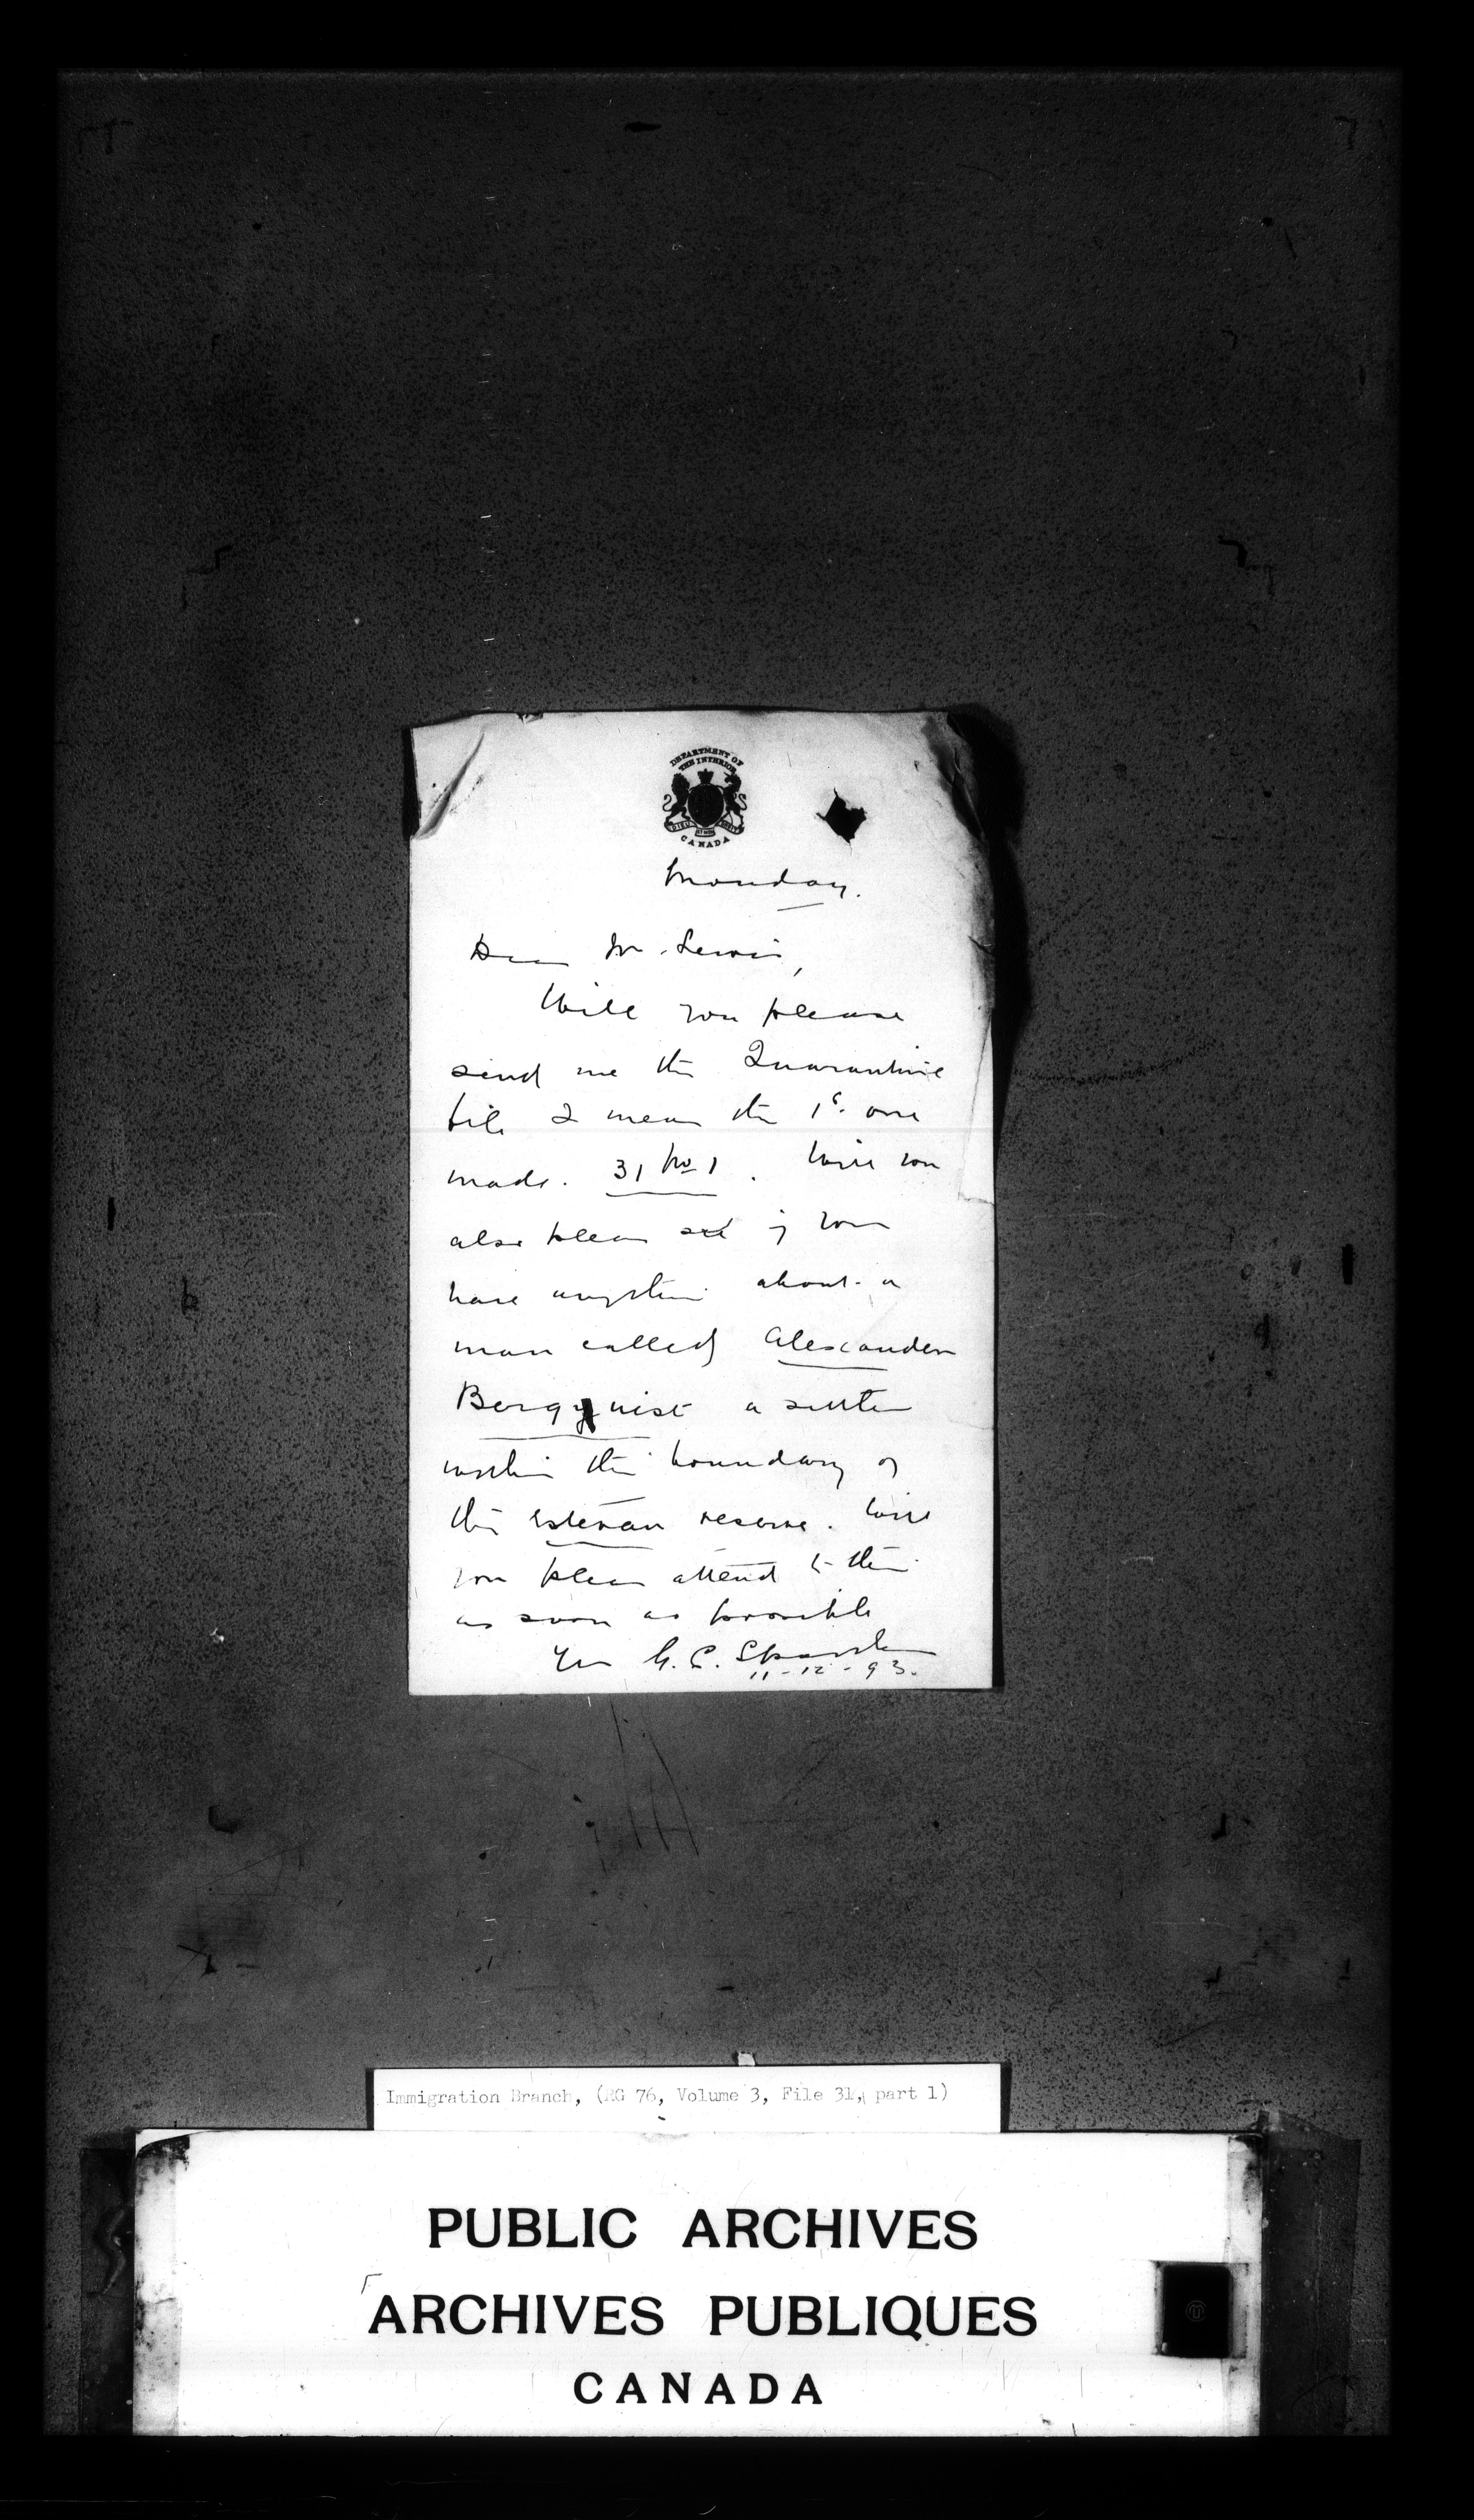 DEPARTMENT OF
THE INTERIOR
DIEU ET MON DROIT
CANADA
Monday.
Dear Mr Lewis,
Will you please
send me the Quarantine
file I mean the 1st one
made. 31 No 1. Will you
also please see if you
have anything about a
man called Alexander
Bergquist a settler
within the boundary of
the Estevan reserve. Will
you please attend to this
as soon as possible
Yrs G. C.
11-12-93.
Immigration Branch, (RG 76, Volume 3, File 31, part 1)
PUBLIC ARCHIVES
ARCHIVES PUBLIQUES
CANADA